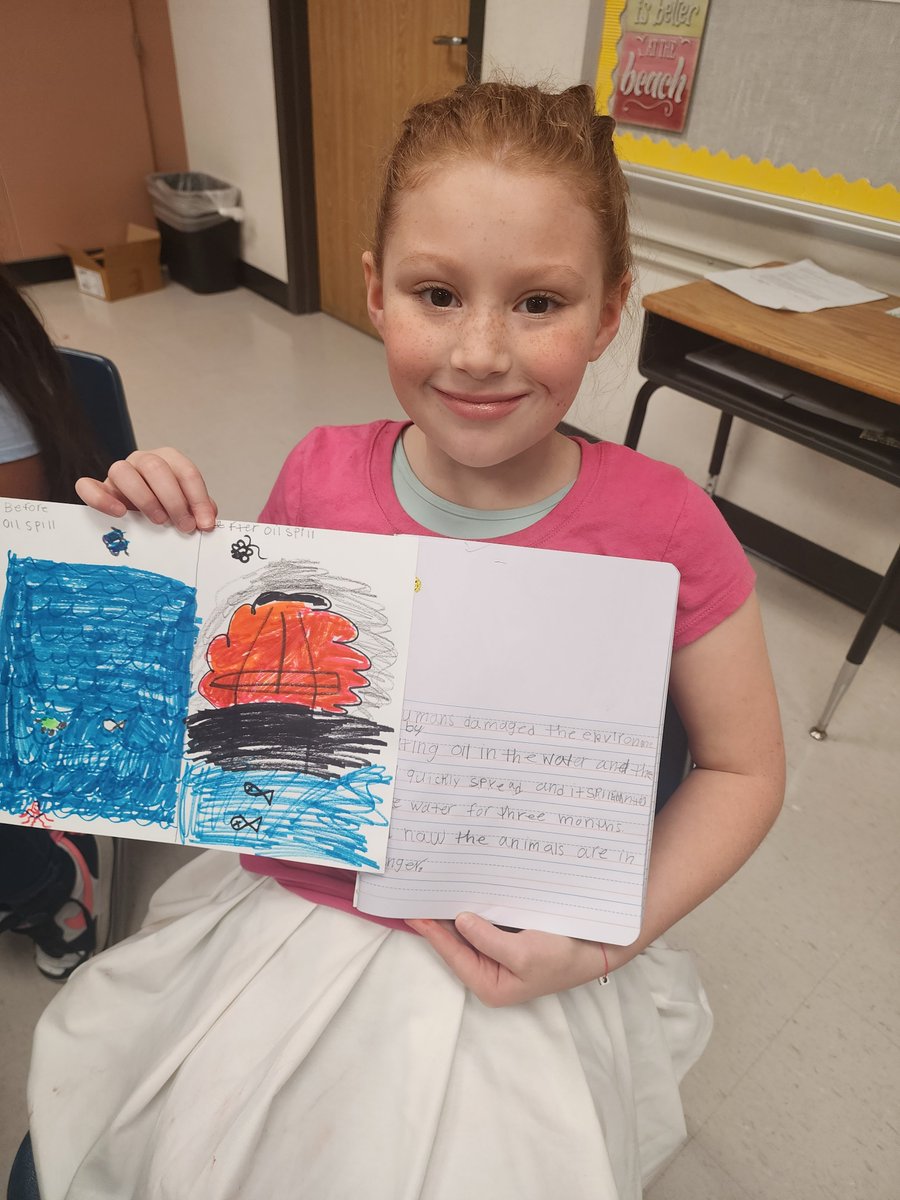 is better
AT THE
beach
Before
Oil spill
After oil spill
umans damaged the environme
by
ting oil in the water and the
quickly spread and it spilled
e water for three months
now the animals are in
nger.